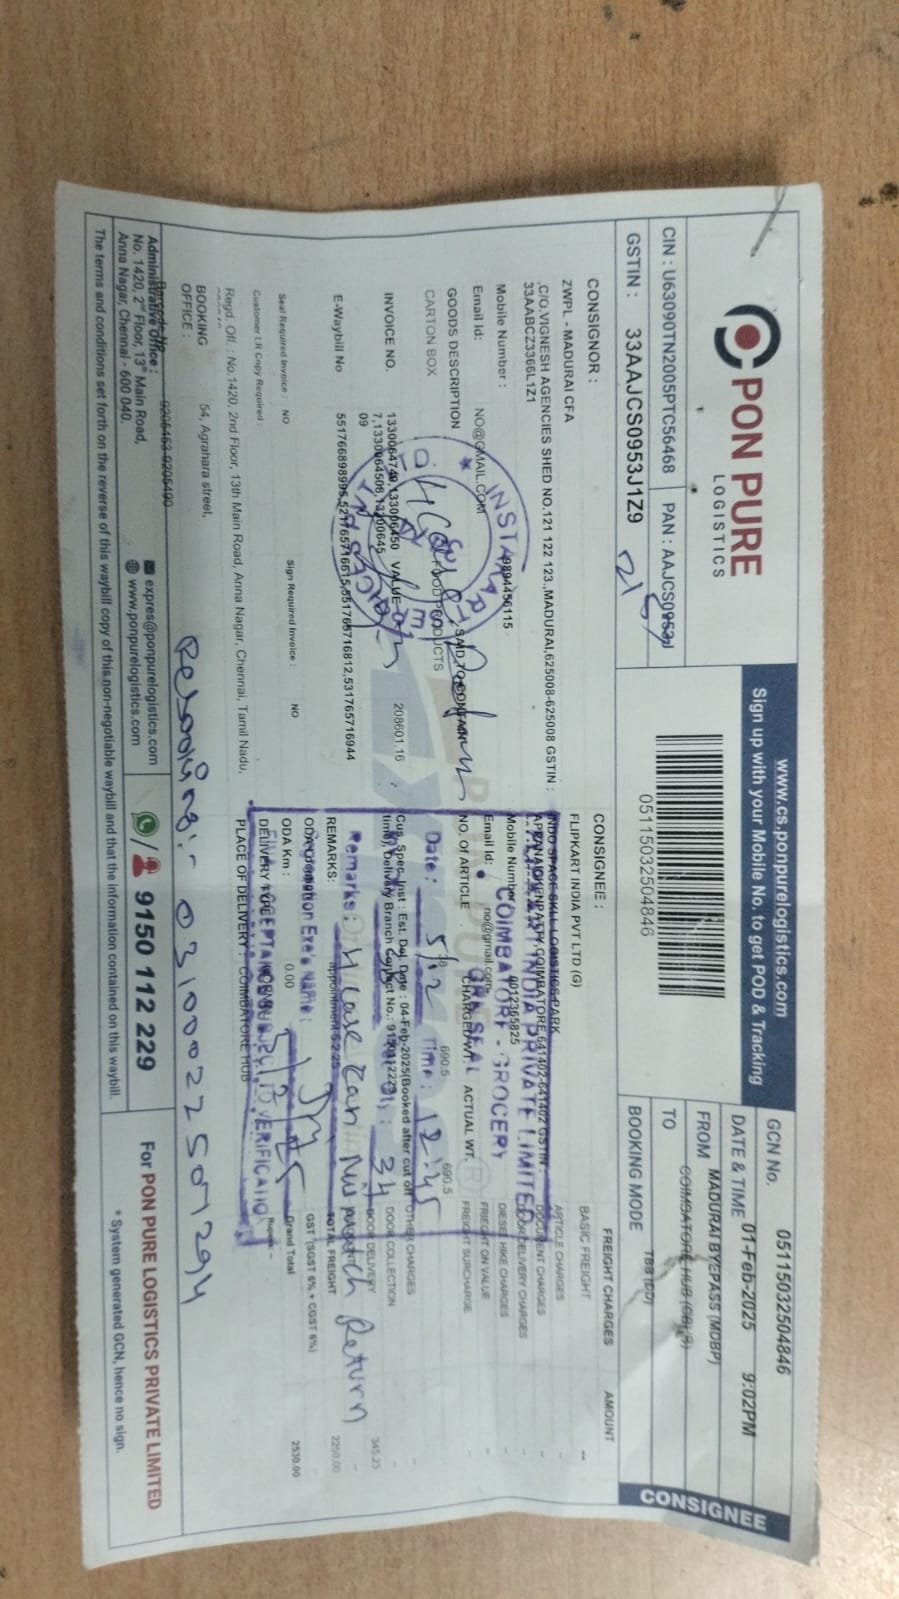 PON PURE
LOGISTICS
www.cs.ponpurelogistics.com
Sign up with your Mobile No. to get POD & Tracking
GCN No. 05115032504846
DATE & TIME 01-Feb-2025 9:02PM
CIN : U63090TN2005PTC56468 PAN : AAJCS0953J
GSTIN : 33AAJCS0953J1Z9
05115032504846
FROM MADURAI BYEPASS (MDBP)
TO COIMBATORE HUB
BOOKING MODE
CONSIGNEE
CONSIGNOR :
ZWPL - MADURAI CFA
,C/O,VIGNESH AGENCIES SHED NO.121 122 123.,MADURAI,625008-625008 GSTIN :
33AABCZ3366L1Z1
Mobile Number : 9894456115
Email Id: NO@GMAIL.COM
GOODS DESCRIPTION SAID TO CONTAIN
CARTON BOX FOOD PRODUCTS
INVOICE NO. 1330064749,133006450 VALUE 208601.16
7,1330064508,13300645
09
E-Waybill No 551766898995,521765716615,551765716812,531765716944
Seal Required Invoice : NO Sign Required Invoice : NO
Customer LR Copy Required :
CONSIGNEE :
FLIPKART INDIA PVT LTD (G)
INDO SPACE SKCL LOGISTICS PARK
COIMBATORE,641402-641402 GSTIN
FLIPKART INDIA PRIVATE LIMITED
Mobile Number 8012365825
COIMBATORE - GROCERY
Email Id: no@gmail.com
NO. OF ARTICLE CHARGED WT. ACTUAL WT.
38 690.5 690.5
Date: 5/2 Time: 12:45
Cus. Spec. Inst : Est. Del. Date : 04-Feb-2025(Booked after cut off
time) Delivery Branch Contact No.:
REMARKS: appointment 5-2-25
Remarks:
ODA KMS:
ODA Km : 0.00
DELIVERY TYPE
PLACE OF DELIVERY : COIMBATORE HUB
FREIGHT CHARGES AMOUNT
BASIC FREIGHT --
ARTICLE CHARGES -
DOCUMENT CHARGES -
DOOR DELIVERY CHARGES -
DIESEL HIKE CHARGES -
FRIEGHT ON VALUE -
FREIGHT SURCHARGE -
OTHER CHARGES -
DOOR COLLECTION -
DOOR DELIVERY 345.23
TOTAL FREIGHT 2250.00
GST (SGST 6% + CGST 6%)
Grand Total 2530.00
Return
Regd. Off. : No.1420, 2nd Floor, 13th Main Road, Anna Nagar, Chennai, Tamil Nadu,
BOOKING 54, Agrahara street,
OFFICE :
Rebooking:- 03100022507294
Administrative Office :
No. 1420, 2nd Floor, 13th Main Road,
Anna Nagar, Chennai - 600 040.
expres@ponpurelogistics.com
www.ponpurelogistics.com
9150 112 229
For PON PURE LOGISTICS PRIVATE LIMITED
* System generated GCN, hence no sign.
The terms and conditions set forth on the reverse of this waybill copy of this non-negotiable waybill and that the information contained on this waybill.